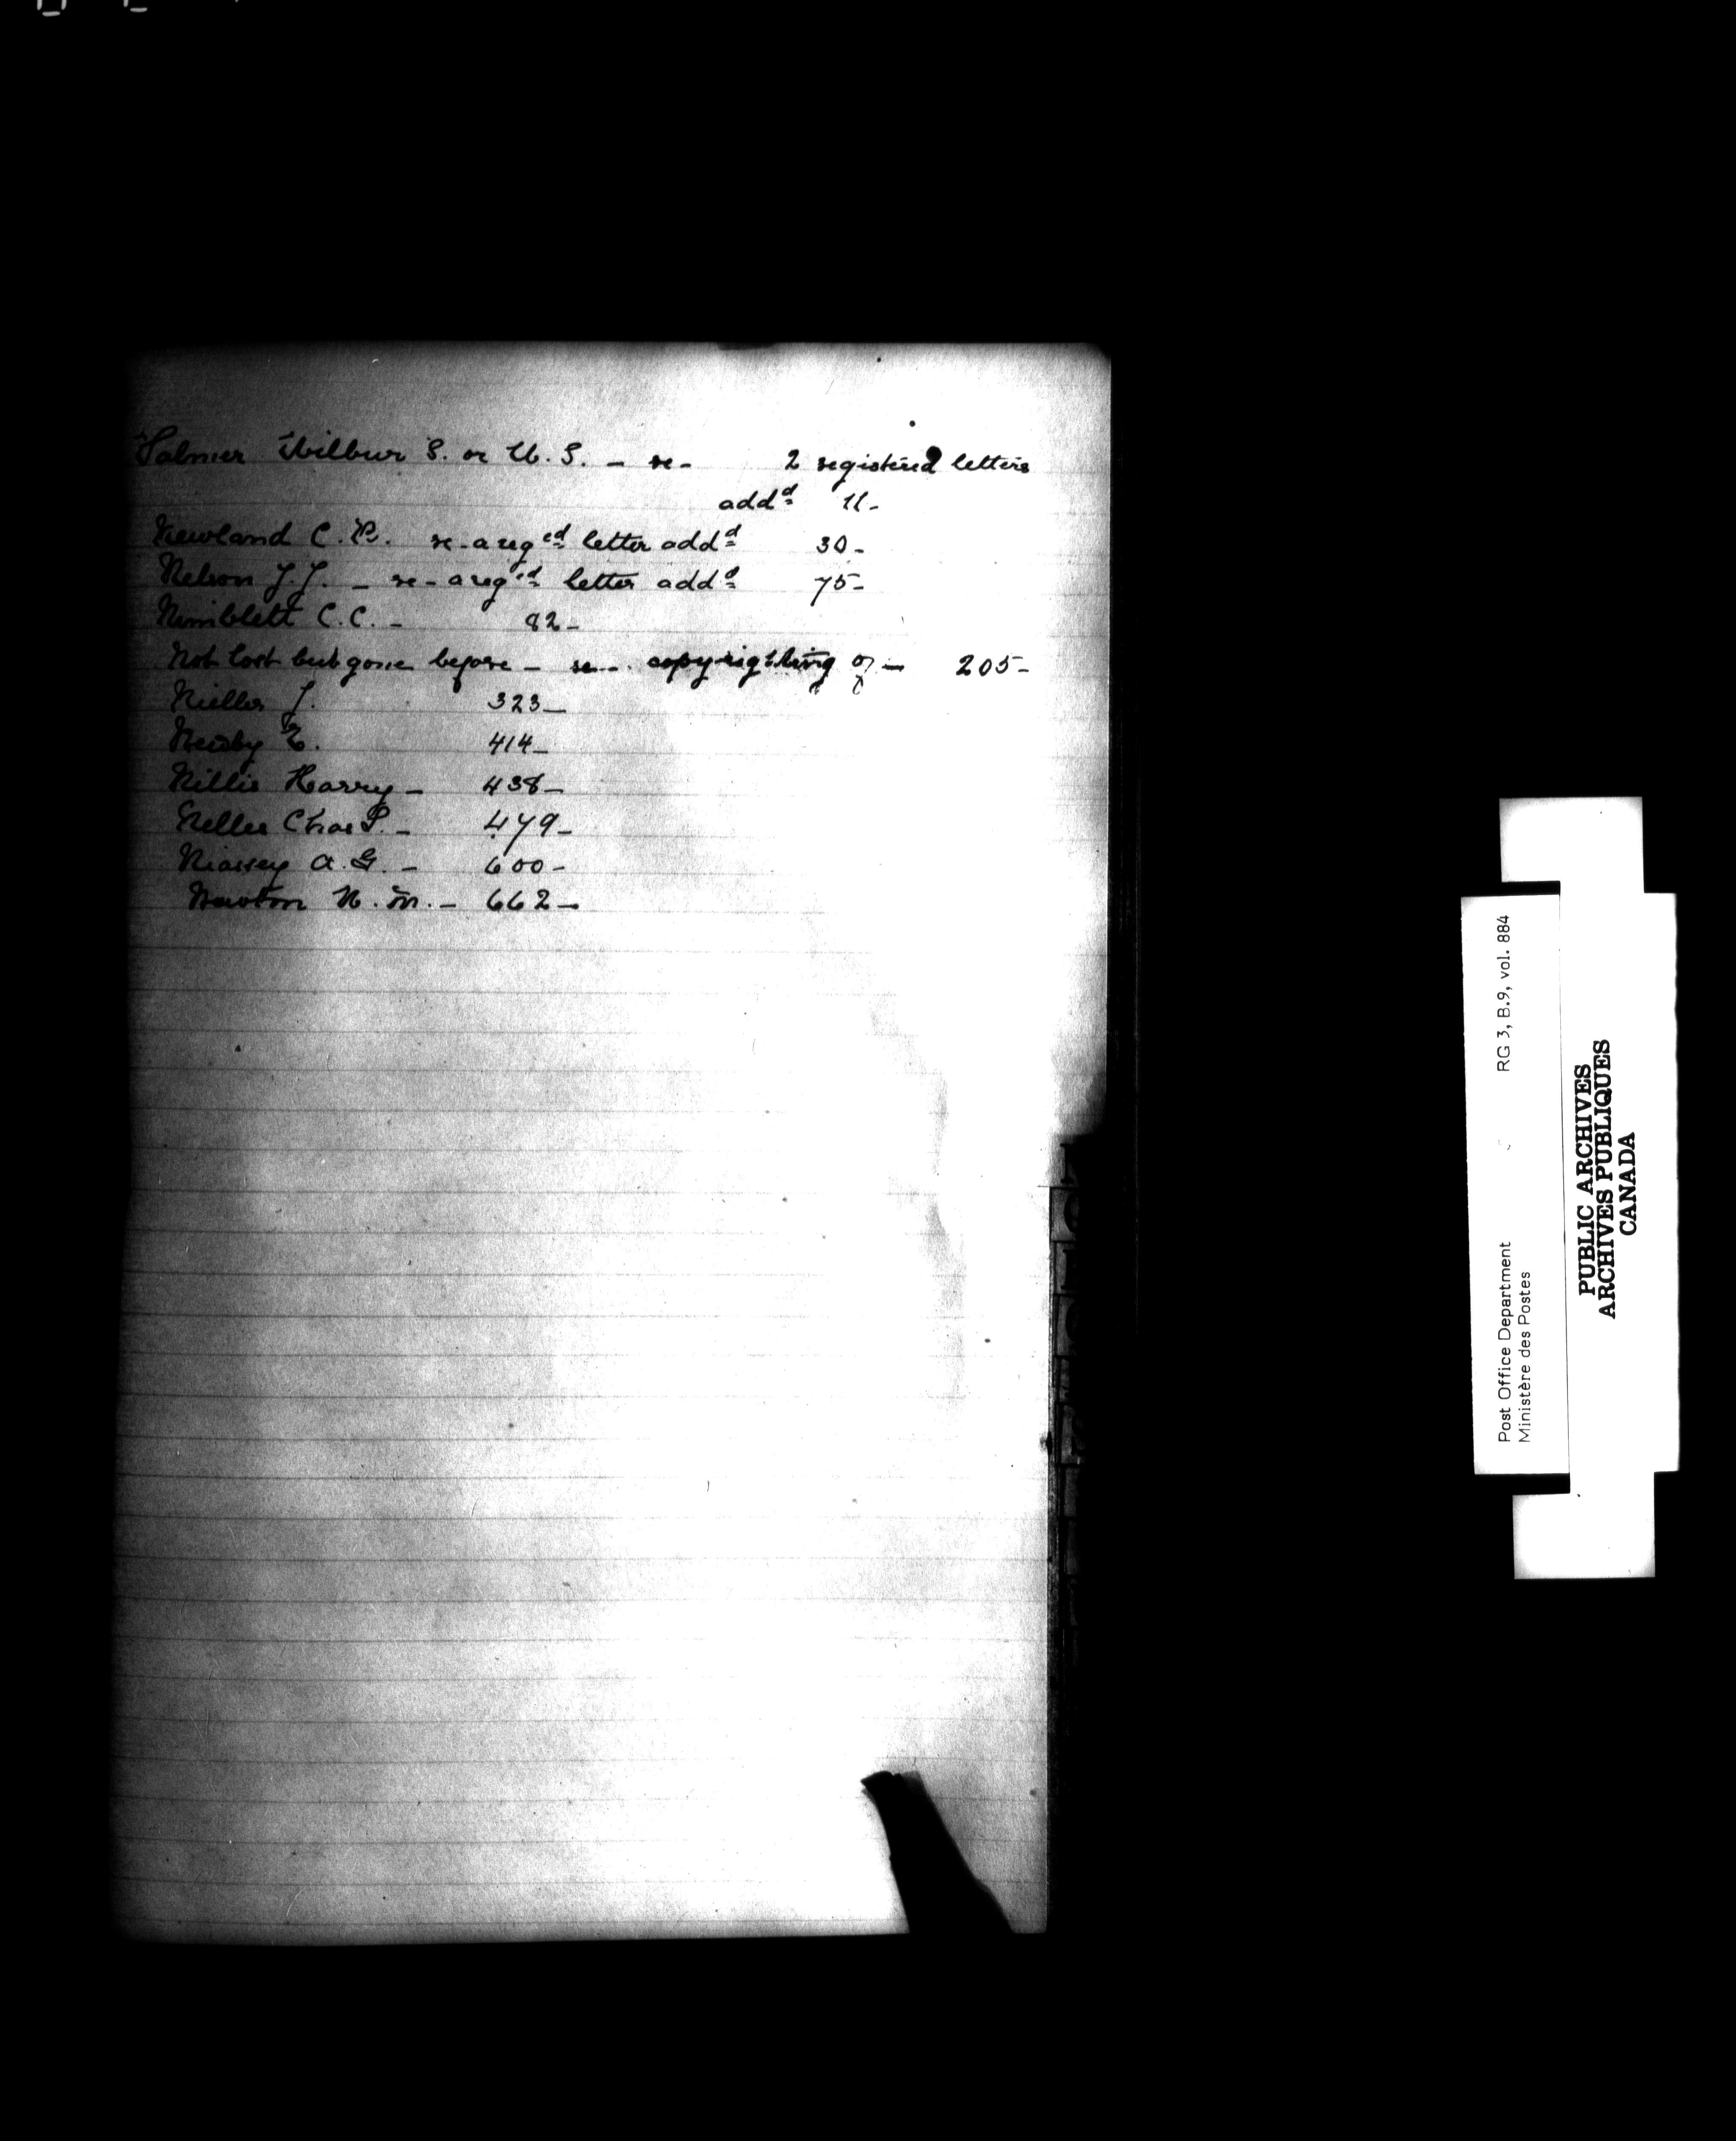 Palmer Wilbur S. or W. S. - re - 2 registered letters
add^d 11 -
Newland C. P. re - a reg^ed letter add^d 30 -
Nelson J. J. - re - a reg^ed letter add^d 75 -
Nimblett C. C. - 82 -
Not lost but gone before - re - copyrighting of - 205 -
J. 323 -
414 -
Harry - 438 -
Nelles Chas P. - 479 -
A. G. - 600 -
Newton N. M. - 662 -
Post Office Department RG 3, B.9, vol. 884
Ministère des Postes
PUBLIC ARCHIVES
ARCHIVES PUBLIQUES
CANADA